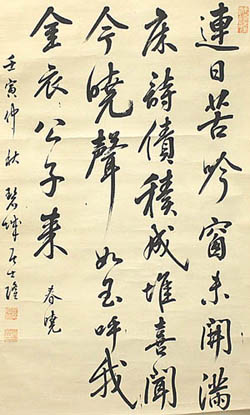 連日苦吟窗未開滿
床詩債積成堆喜聞
今曉聲如玉呼我
金衣公子來 春曉
壬寅仲秋 居士隆